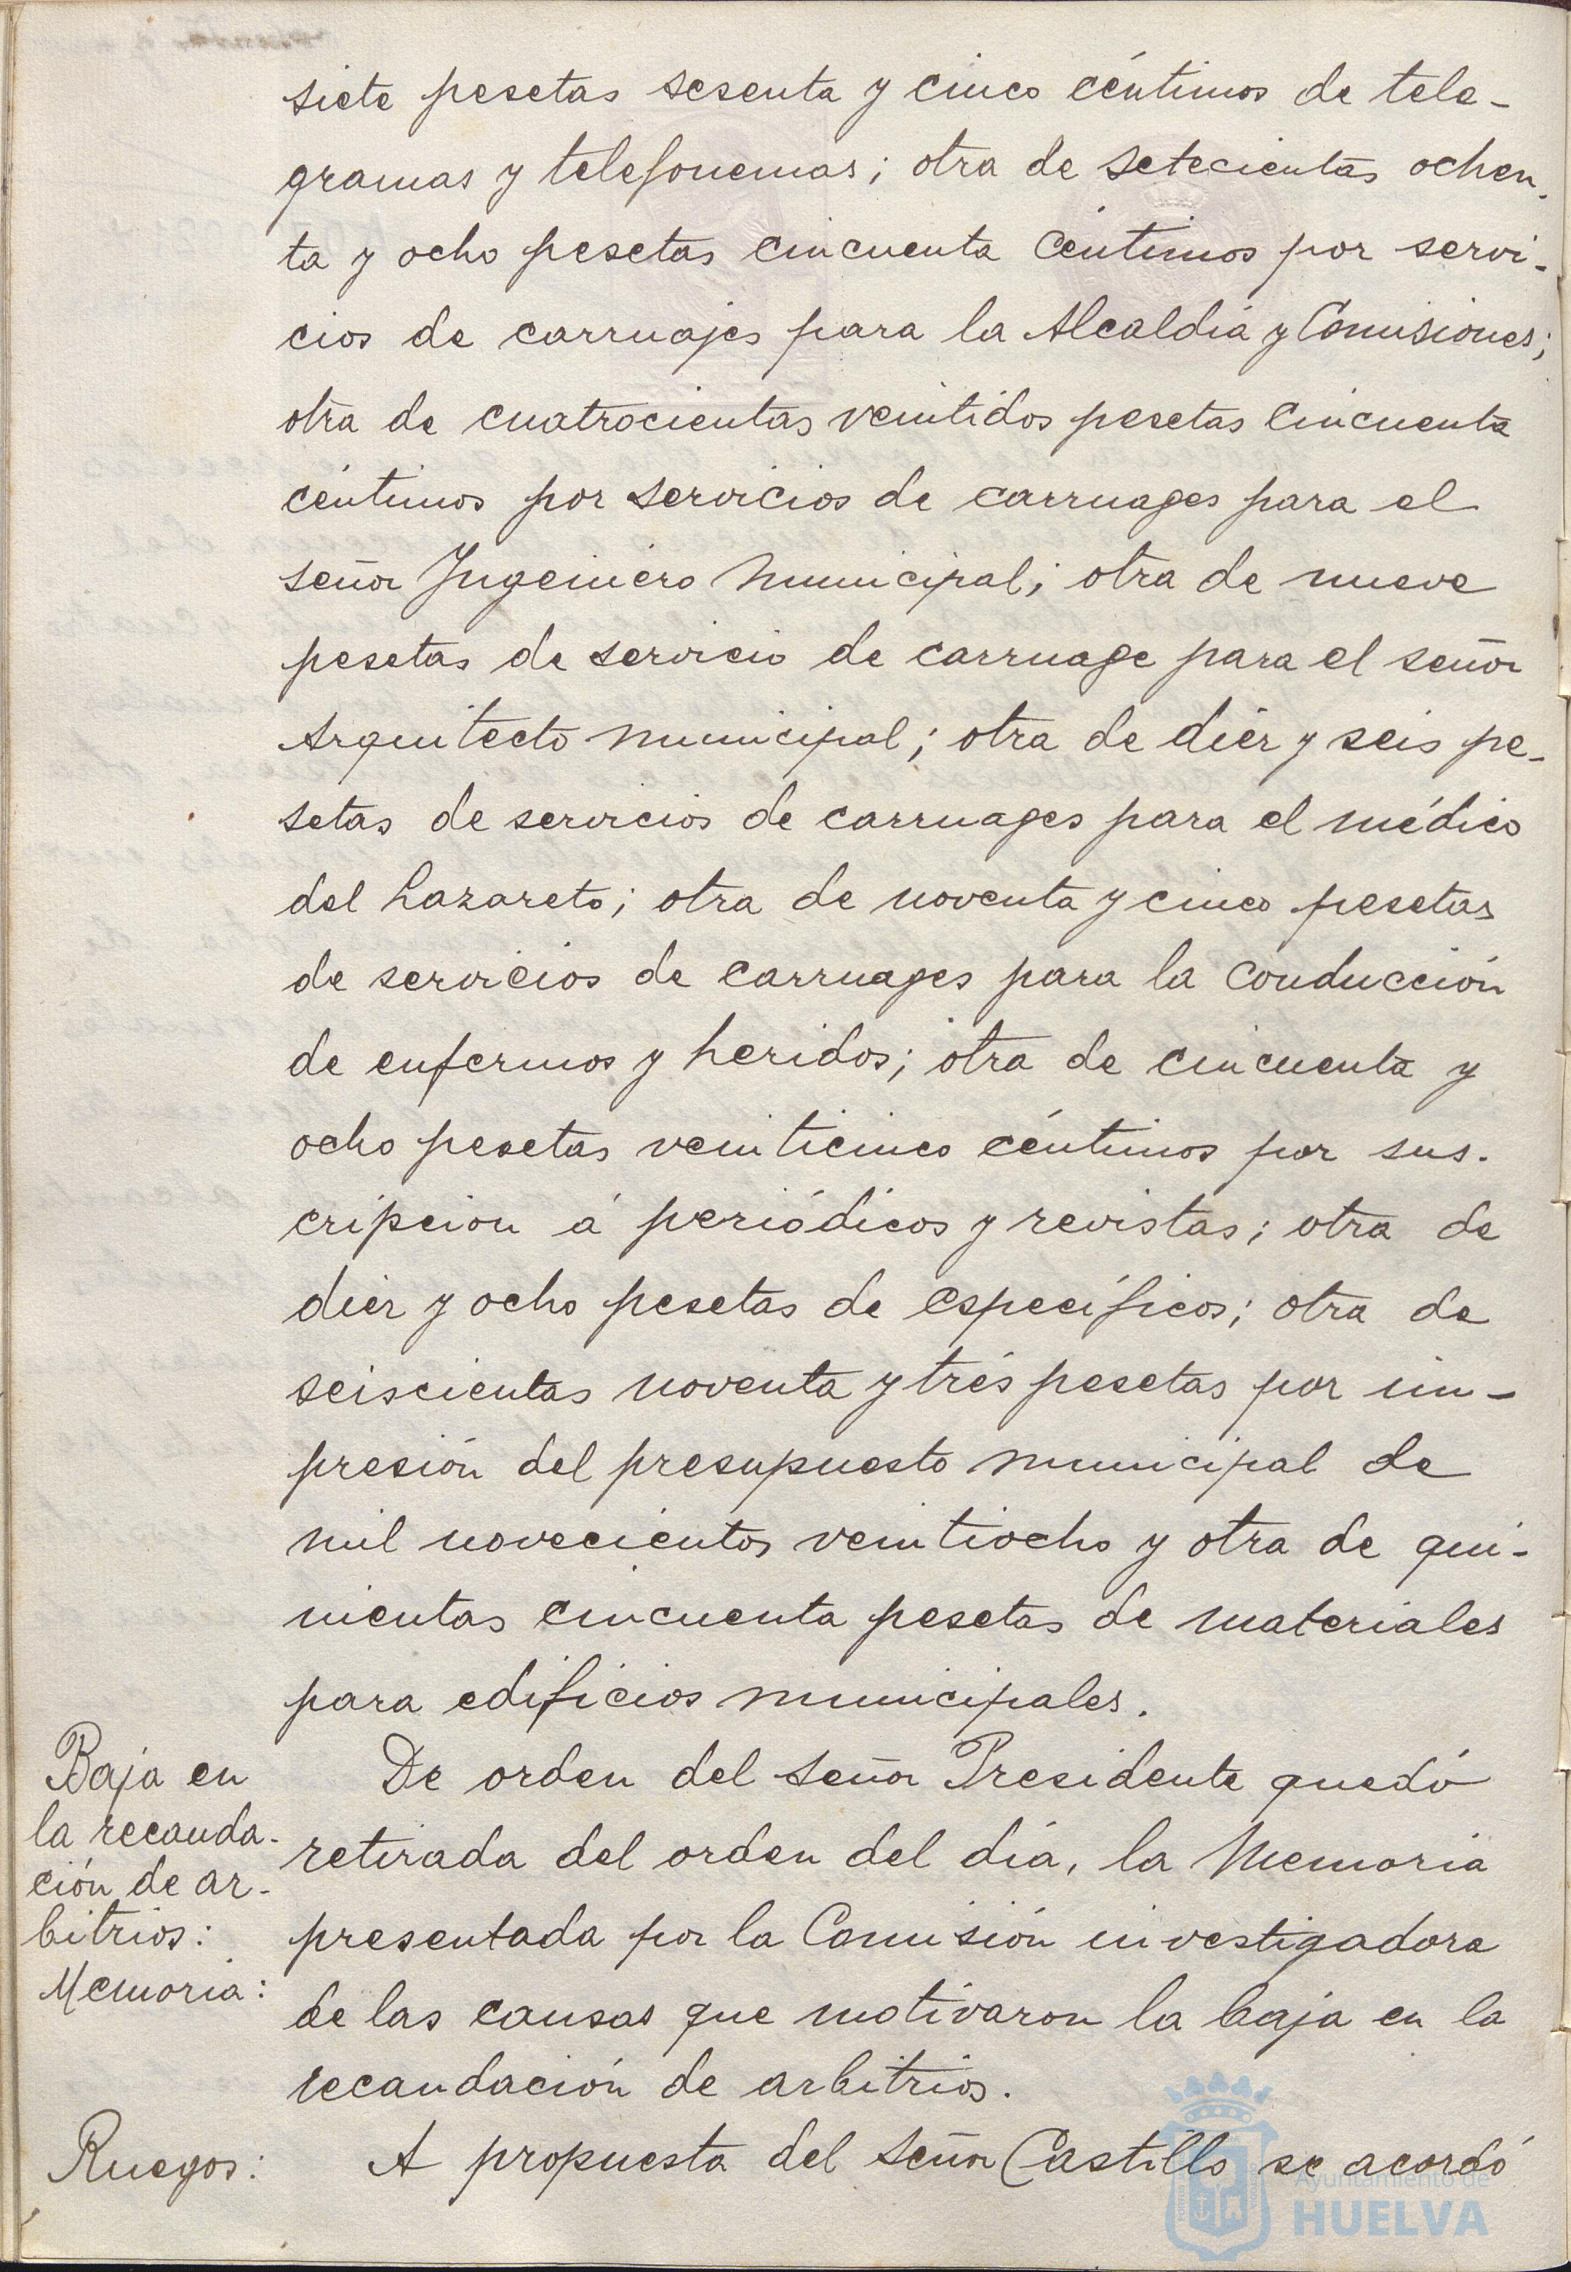 siete pesetas sesenta y cinco céntimos de tele-
gramas y telefonemas; otra de setecientas ochen-
ta y ocho pesetas cincuenta céntimos por servi-
cios de carruajes para la Alcaldia y Comisiones;
otra de cuatrocientas veintidos pesetas cincuenta
céntimos por servicios de carruages para el
señor Ingeniero municipal; otra de nueve
pesetas de servicio de carruage para el señor
Arquitecto municipal; otra de diéz y seis pe-
setas de servicios de carruages para el médico
del Lazareto; otra de noventa y cinco pesetas
de servicios de carruages para la conducción
de enfermos y heridos; otra de cincuenta y
ocho pesetas veinticinco céntimos por sus-
cripcion á periódicos y revistas; otra de
diéz y ocho pesetas de específicos; otra de
seiscientas noventa y trés pesetas por im-
presión del presupuesto municipal de
mil novecientos veintiocho y otra de qui-
nientas cincuenta pesetas de materiales
para edificios municipales.
Baja en
la recauda-
ción de ar-
bitrios:
Memoria:
De orden del señor Presidente quedó
retirada del orden del dia, la Memoria
presentada por la Comisión investigadora
de las causas que motivaron la baja en la
recaudación de arbitrios.
Ruegos:
A propuesta del señor Castillo se acordó
Ayuntamiento de
HUELVA